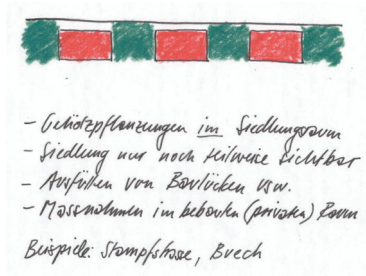 - Gehölzpflanzungen im Siedlungsraum
- Siedlung nur noch teilweise sichtbar
- Ausfüllen von Baulücken usw.
- Massnahmen im bebauten (privaten) Raum
Beispiele: Stampfstrasse, Buech